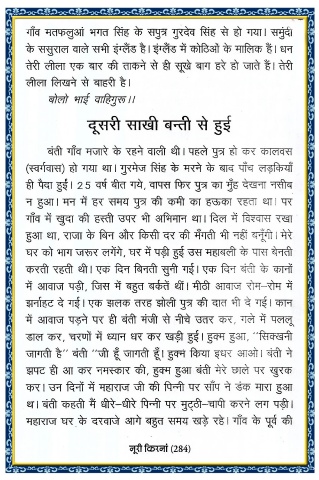 गाँव मतफलुओं भगत सिंह के सपुत्र गुरदेव सिंह से हो गया। समुंदां
के ससुराल वाले सभी इंग्लैंड है। इंग्लैंड में कोठिओं के मालिक हैं। धन
तेरी लीला एक बार की ताकने से ही सूखे बाग हरे हो जाते हैं। तेरी
लीला लिखने से बाहरी है।
बोलो भाई वाहिगुरू॥
दूसरी साखी बन्ती से हुई
बंती गाँव मजारे के रहने वाली थी। पहले पुत्र हो कर कालवस
(स्वर्गवास) हो गया था। गुरमेज सिंह के मरने के बाद पाँच लड़कियाँ
ही पैदा हुईं। 25 वर्ष बीत गये, वापस फिर पुत्र का मुँह देखना नसीब
न हुआ। मन में हर समय पुत्र की कमी का हऊका रहता था। पर
गाँव में खुदा की हस्ती उपर भी अभिमान था। दिल में विश्वास रखा
हुआ था, राजा के बिन और किसी दर की मँगती भी नहीं बनूँगी। मेरे
घर को भाग जरूर लगेंगे, घर में पड़ी हुई उस महाबली के पास बेनती
करती रहती थी। एक दिन बिनती सुनी गई। एक दिन बंती के कानों
में आवाज पड़ी, जिस में बहुत बर्कतें थीं। मीठी आवाज रोम-रोम में
झर्नाहट दे गई। एक झलक तरह झोली पुत्र की दात भी दे गई। कान
में आवाज पड़ने पर ही बंती मंजी से नीचे उतर कर, गले में पललू
डाल कर, चरणों में ध्यान धर कर खड़ी हुई। हुक्म हुआ, "सिक्खनी
जागती है" बंती "जी हूँ जागती हूँ। हुक्म किया इधर आओ। बंती ने
झपट ही आ कर नमस्कार की, हुक्म हुआ बंती मेरे छाले पर खुरक
कर। उन दिनों में महाराज जी की पिन्नी पर साँप ने डंक मारा हुआ
था। बंती कहती मैं धीरे-धीरे पिन्नी पर मुट्ठी-चापी करने लग पड़ी।
महाराज घर के दरवाजे आगे बहुत समय खड़े रहे। गाँव के पूर्व की
नूरी किरनां (284)